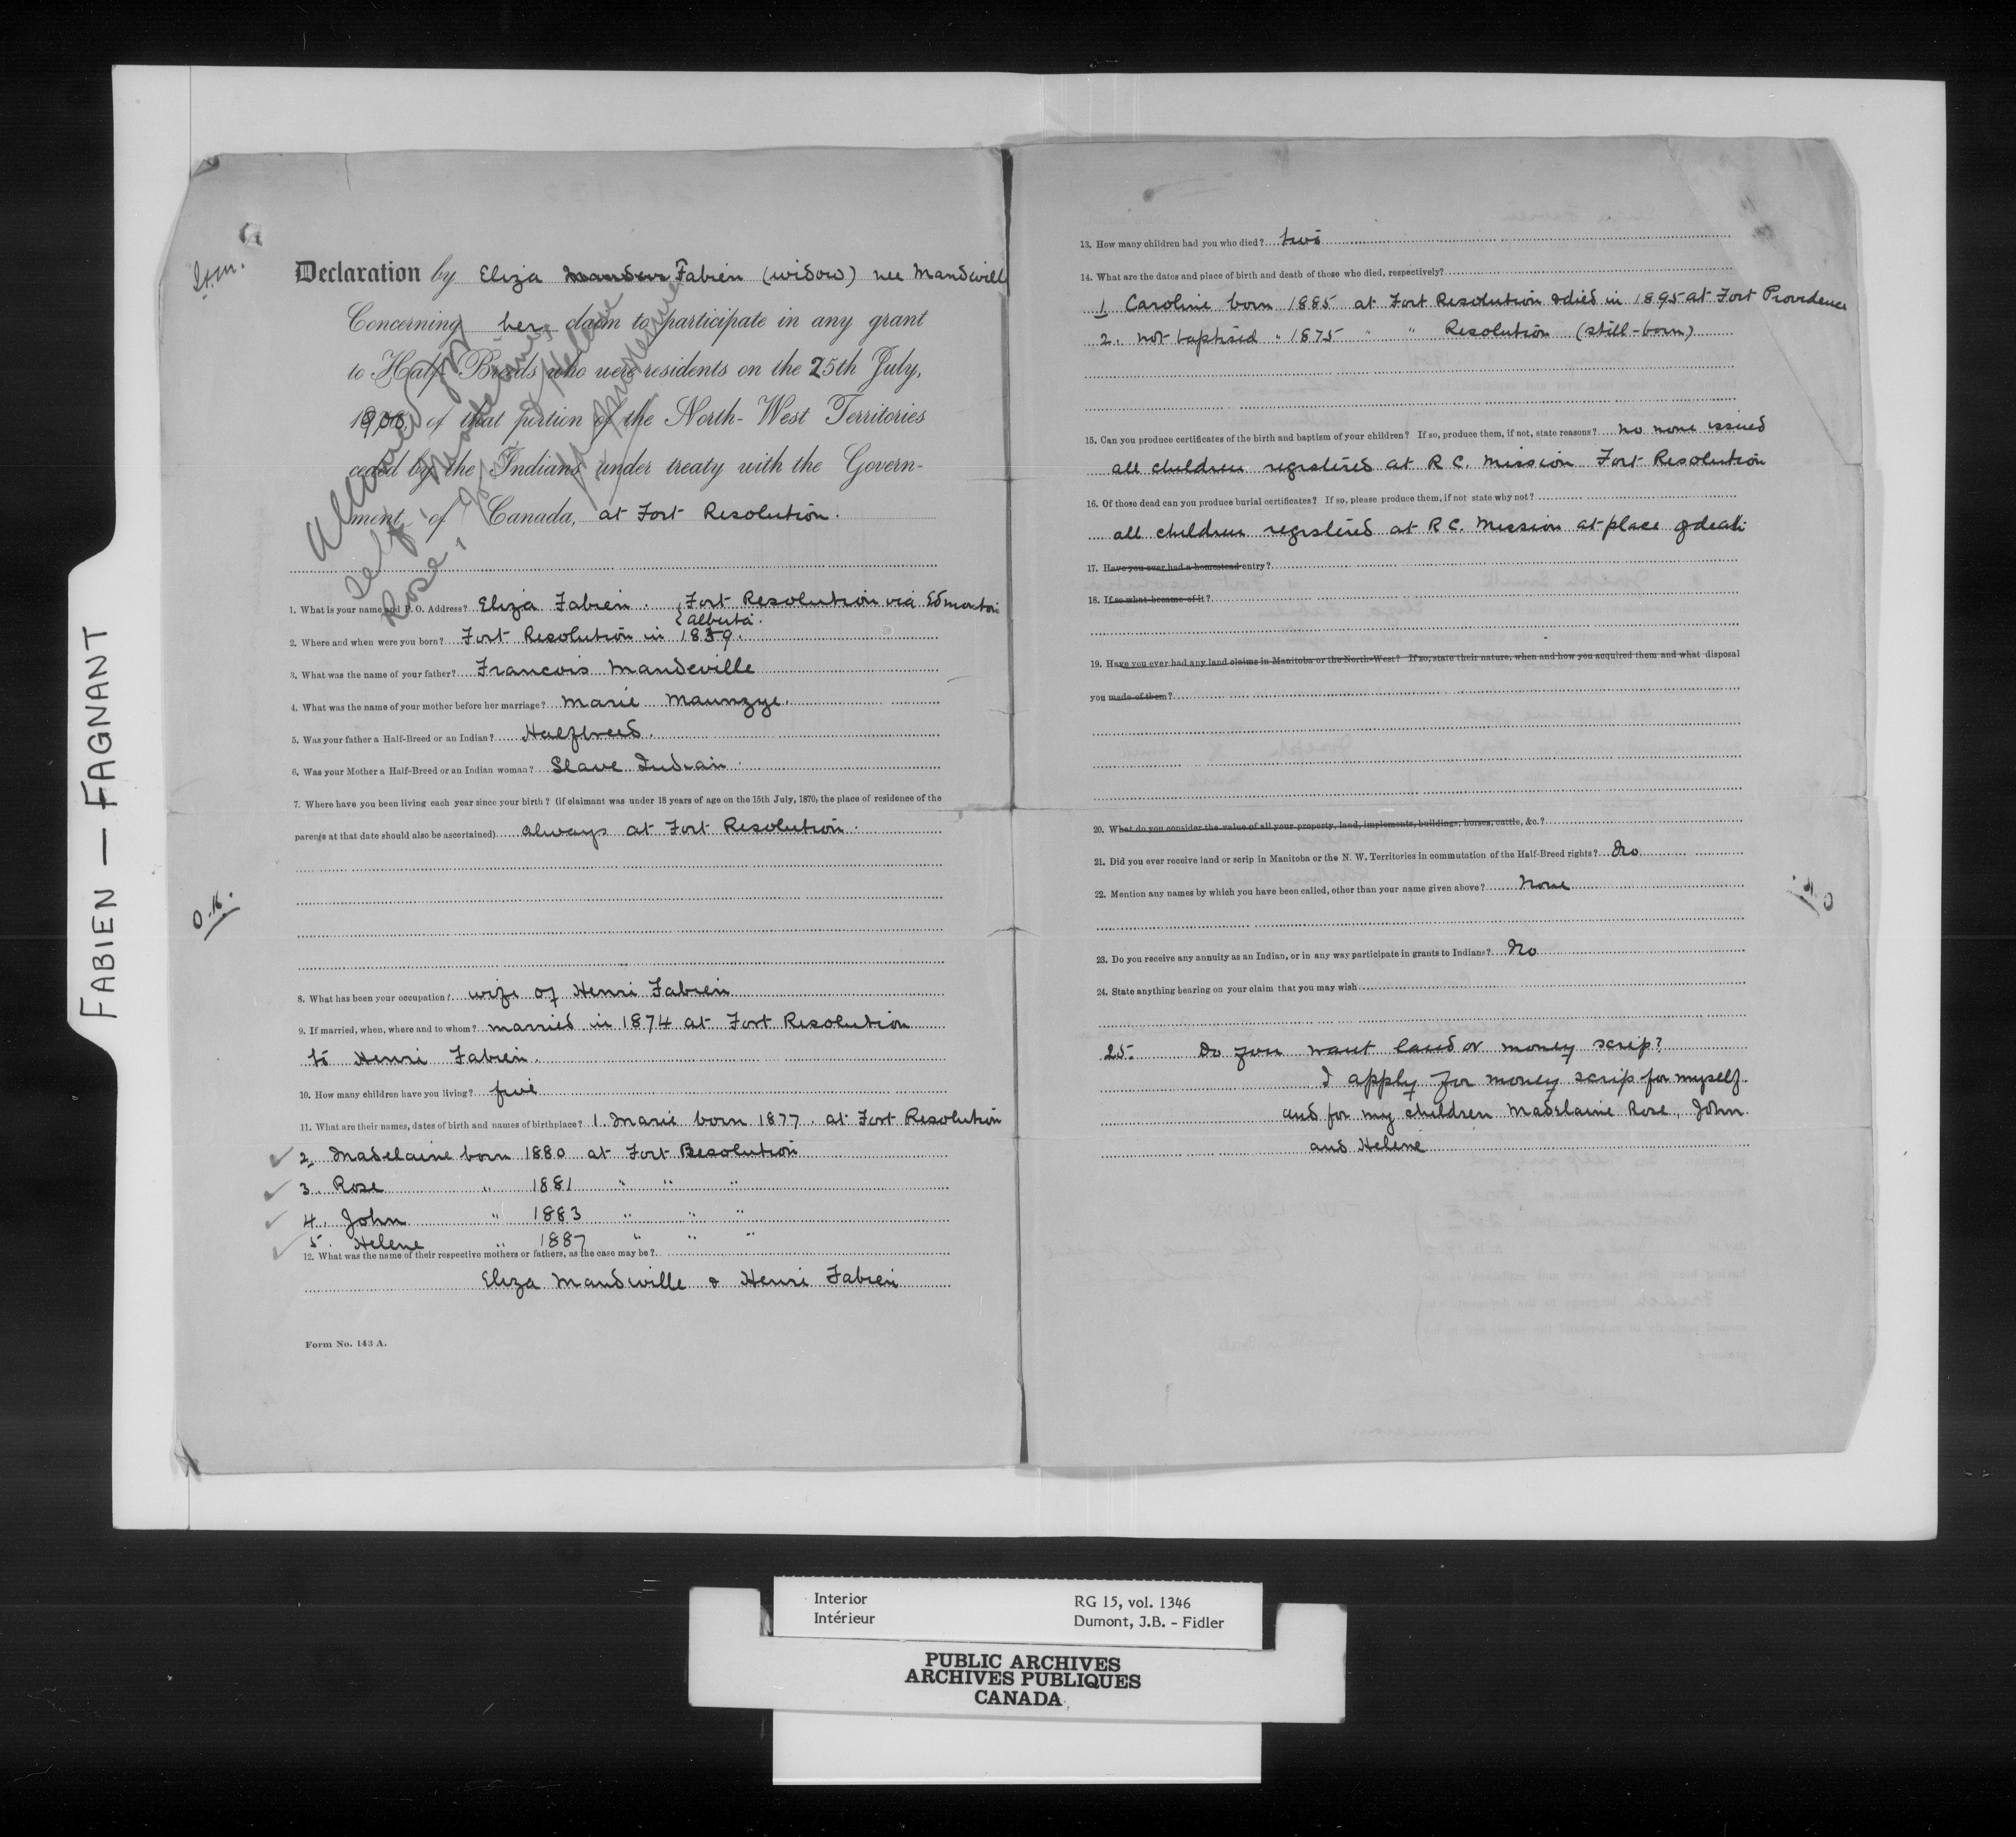 FABIEN — FAGNANT
Declaration by Eliza Fabien (widow) nee Mandeville
Concerning her claim to participate in any grant
to Half Breeds who were residents on the 25th July,
1900, of that portion of the North-West Territories
ceded by the Indians under treaty with the Govern-
ment, of Canada, at Fort Resolution.
Allowed for
self, Madelaine,
Rose, John & Helene
1. What is your name and P. O. Address? Eliza Fabien. {Fort Resolution via Edmonton
{Alberta.
2. Where and when were you born? Fort Resolution in 1839.
3. What was the name of your father? Francois Mandeville
4. What was the name of your mother before her marriage? Marie Maunzye.
5. Was your father a Half-Breed or an Indian? Halfbreed.
6. Was your Mother a Half-Breed or an Indian woman? Slave Indian.
7. Where have you been living each year since your birth? (if claimant was under 18 years of age on the 15th July, 1870, the place of residence of the
parents at that date should also be ascertained) always at Fort Resolution.
O.K.
8. What has been your occupation? wife of Henri Fabien
9. If married, when, where and to whom? married in 1874 at Fort Resolution
to Henri Fabien.
10. How many children have you living? five
11. What are their names, dates of birth and names of birthplace? 1. Marie born 1877. at Fort Resolution
2. Madelaine born 1880 at Fort Resolution
3. Rose " 1881 " " "
4. John " 1883 " " "
5. Helene " 1887 " " "
12. What was the name of their respective mothers or fathers, as the case may be?
Eliza Mandeville & Henri Fabien
Form No. 143 A.
13. How many children had you who died? two
14. What are the dates and place of birth and death of those who died, respectively?
1 Caroline born 1885 at Fort Resolution & died in 1895 at Fort Providence
2. not baptised " 1875 " " Resolution (still-born)
15. Can you produce certificates of the birth and baptism of your children? If so, produce them, if not, state reasons? no none issued
all children registered at R C. Mission Fort Resolution
16. Of those dead can you produce burial certificates? If so, please produce them, if not state why not?
all children registered at R C. Mission at place of death
17. Have you ever had a homestead entry?
18. If so what became of it?
19. Have you ever had any land claims in Manitoba or the North-West? If so, state their nature, when and how you acquired them and what disposal
you made of them?
20. What do you consider the value of all your property, land, implements, buildings, horses, cattle, &c.?
21. Did you ever receive land or scrip in Manitoba or the N. W. Territories in commutation of the Half-Breed rights? No
22. Mention any names by which you have been called, other than your name given above? None
23. Do you receive any annuity as an Indian, or in any way participate in grants to Indians? No
24. State anything bearing on your claim that you may wish
25. Do you want land or money scrip?
I apply for money scrip for myself
and for my children Madelaine Rose, John
and Helene
Interior RG 15, vol. 1346
Intérieur Dumont, J.B. - Fidler
PUBLIC ARCHIVES
ARCHIVES PUBLIQUES
CANADA